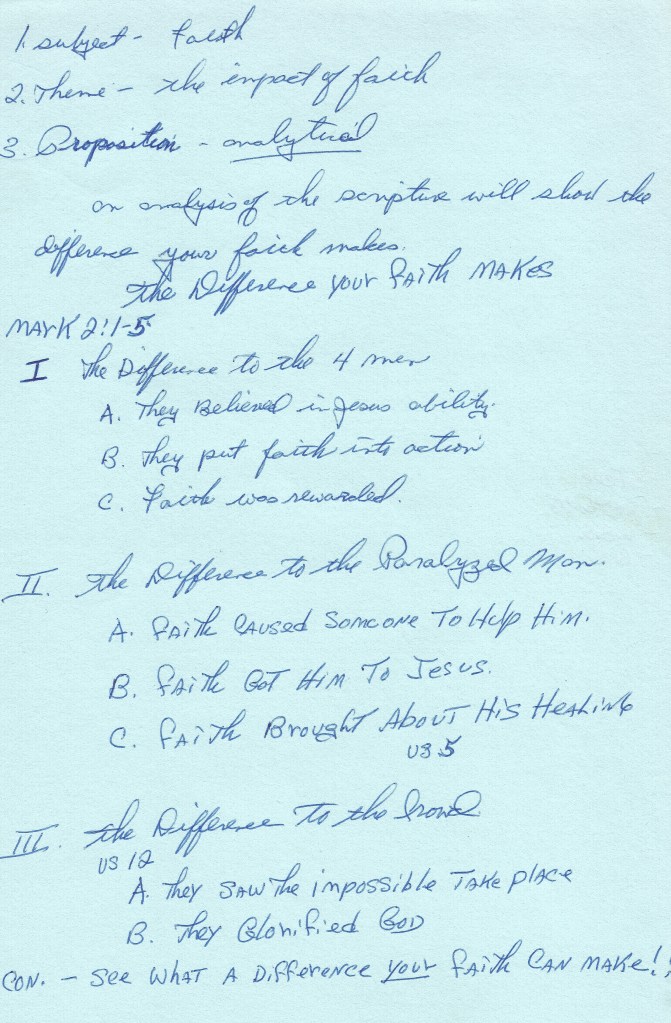 1. subject - Faith
2. Theme - the impact of faith
3. Proposition - analytical
an analysis of the scripture will show the
difference your faith makes.
the Difference your Faith Makes
Mark 2:1-5
I The Difference to the 4 men
A. They Believed in Jesus ability.
B. They put faith into action
C. Faith was rewarded.
II. the Difference to the Paralyzed Man.
A. Faith Caused Someone To Help Him.
B. Faith Got Him To Jesus.
C. Faith Brought About His Healing
vs 5
III. the Difference To the Crowd
vs 12
A. They Saw The impossible Take place
B. They Glorified God
Con. - See What A Difference your Faith Can Make!!